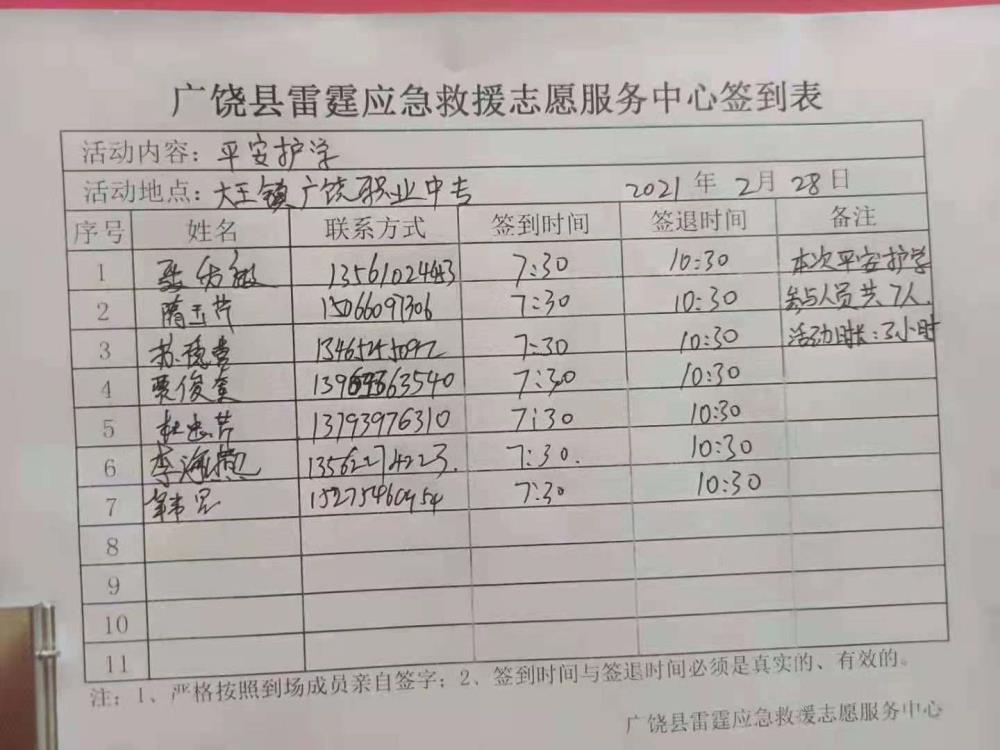 广饶县雷霆应急救援志愿服务中心签到表
活动内容：平安护学
活动地点：大王镇广饶职业中专 2021年2月28日
序号 姓名 联系方式 签到时间 签退时间 备注
1 13561024643 7:30 10:30 本次平安护学
2 隋玉芹 15066097306 7:30 10:30 参与人员共7人.
3 7:30 10:30 活动时长:3小时
4 7:30 10:30
5 杜忠芹 13793976310 7:30 10:30
6 李海燕 13562274223. 7:30. 10:30
7 7:30 10:30
8
9
10
11
注：1、严格按照到场成员亲自签字；2、签到时间与签退时间必须是真实的、有效的。
广饶县雷霆应急救援志愿服务中心